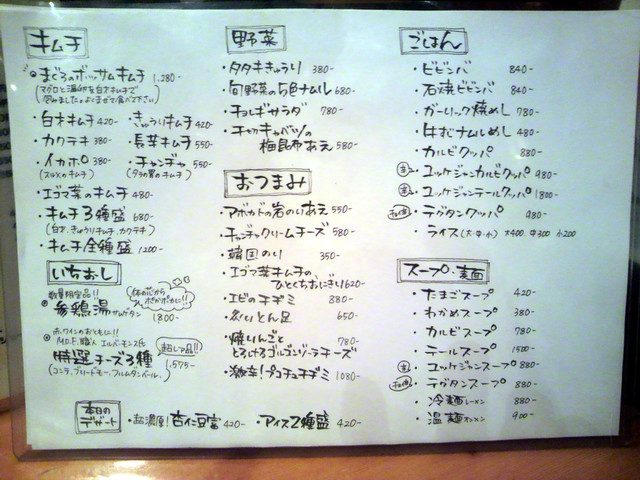 キムチ
まぐろのボッサムキムチ 1,280-
白才キムチ 420-
きゅうりキムチ 420-
カクテキ 380-
長芋キムチ 550-
イカホロ 380-
(スルメのキムチ)
チャンヂャ 550-
(タラの胃のキムチ)
エゴマ菜のキムチ 480-
キムチ3種盛 680-
(白才、きゅうりキムチ、カクテキ)
キムチ全種盛 1200-
いちおし
数量限定品!!
参鶏湯 サムゲタン 1,800-
体の芯からポカポカに!!
赤ワインのおともに!!
M.O.F.職人 エルバ・モンス氏
特選チーズ3種 1,575-
超レア品!!
(コンテ、ブリードモー、フルムダンベール、)
本日のデザート
・超濃厚!杏仁豆腐 420-
・アイス2種盛 420-
野菜
・タタキきゅうり 380-
・旬野菜の5色ナムル 680-
・チョレギサラダ 780-
・千切キャベツの
梅昆布あえ 580-
おつまみ
・アボカドの岩のりあえ 550-
・チャンヂャクリームチーズ 580-
・韓国のり 350-
・エゴマ菜キムチの
ひとくちおにぎり 620-
・エビのチヂミ 880-
・炙りとん足 650-
・焼りんごと 780-
とろけるゴルゴンゾーラチーズ
・激辛!プコチュチヂミ 1080-
ごはん
・ビビンバ 840-
・石焼ビビンバ 840-
・ガーリック焼めし 780-
・牛すじナムルめし 480-
・カルビクッパ 880-
・ユッケジャンカルビクッパ 980-
・ユッケジャンテールクッパ 1800-
・テグタンクッパ 980-
・ライス(大・中・小) 大400. 中300 小200
スープ・麺
・たまごスープ 420-
・わかめスープ 380-
・カルビスープ 780-
・テールスープ 1500-
・ユッケジャンスープ 880-
・テグタンスープ 880-
・冷麺 レーメン 880-
・温麺 オンメン 900-